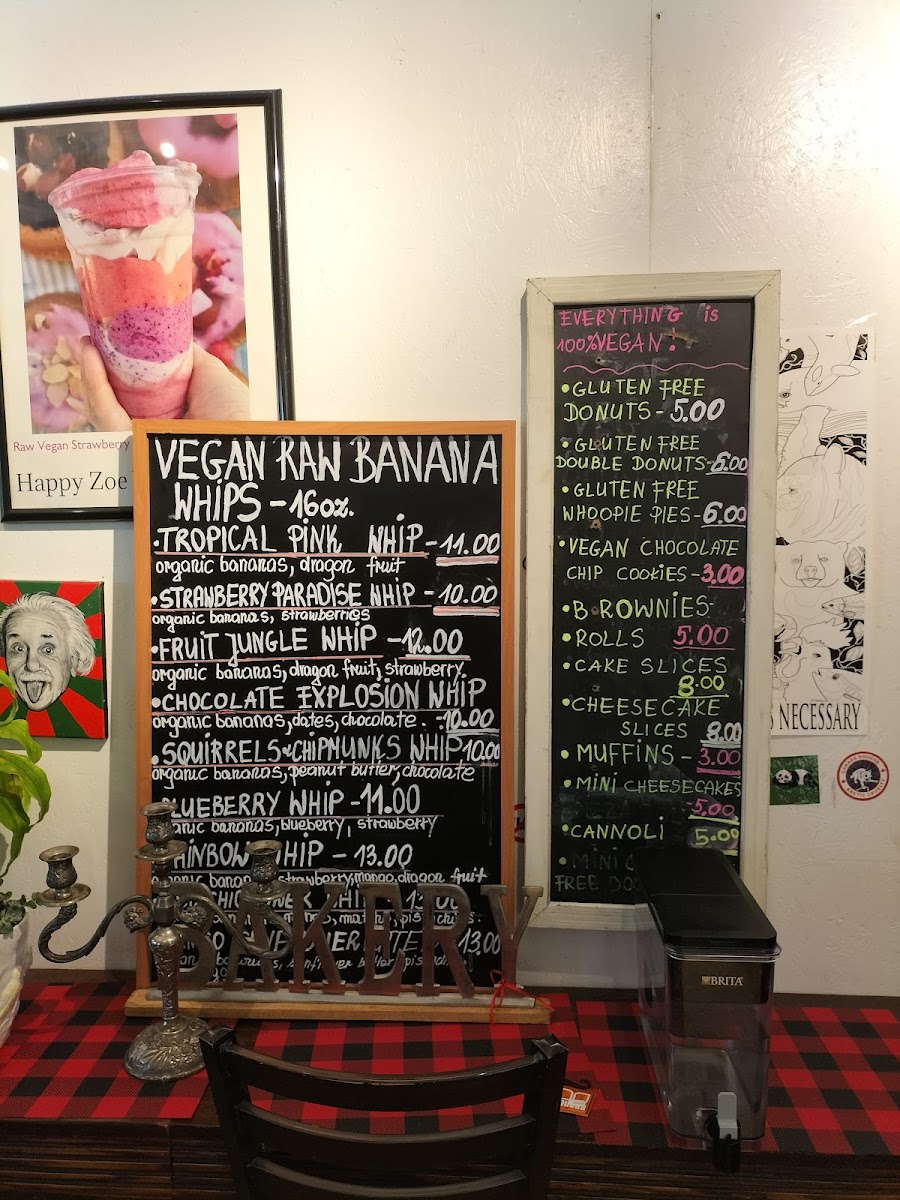 Raw Vegan Strawberry
Happy Zoe
VEGAN RAW BANANA
WHIPS - 16oz.
•TROPICAL PINK WHIP - 11.00
organic bananas, dragon fruit
•STRAWBERRY PARADISE WHIP - 10.00
organic bananas, strawberries
•FRUIT JUNGLE WHIP - 12.00
organic bananas, dragon fruit, strawberry
•CHOCOLATE EXPLOSION WHIP
organic bananas, dates, chocolate. - 10.00
•SQUIRRELS & CHIPMUNKS WHIP 10.00
organic bananas, peanut butter, chocolate
BLUEBERRY WHIP - 11.00
bananas, blueberry, strawberry
WHIP - 13.00
strawberry, mango, dragon fruit
13.00
13.00
BAKERY
EVERYTHING is
100% VEGAN!
•GLUTEN FREE
DONUTS - 5.00
•GLUTEN FREE
DOUBLE DONUTS - 6.00
•GLUTEN FREE
WHOOPIE PIES - 6.00
•VEGAN CHOCOLATE
CHIP COOKIES - 3.00
•BROWNIES-
•ROLLS 5.00
•CAKE SLICES
8.00
•CHEESECAKE
SLICES 8.00
•MUFFINS - 3.00
•MINI CHEESECAKES
- 5.00
•CANNOLI 5.00
•MINI
FREE
BRITA
NECESSARY